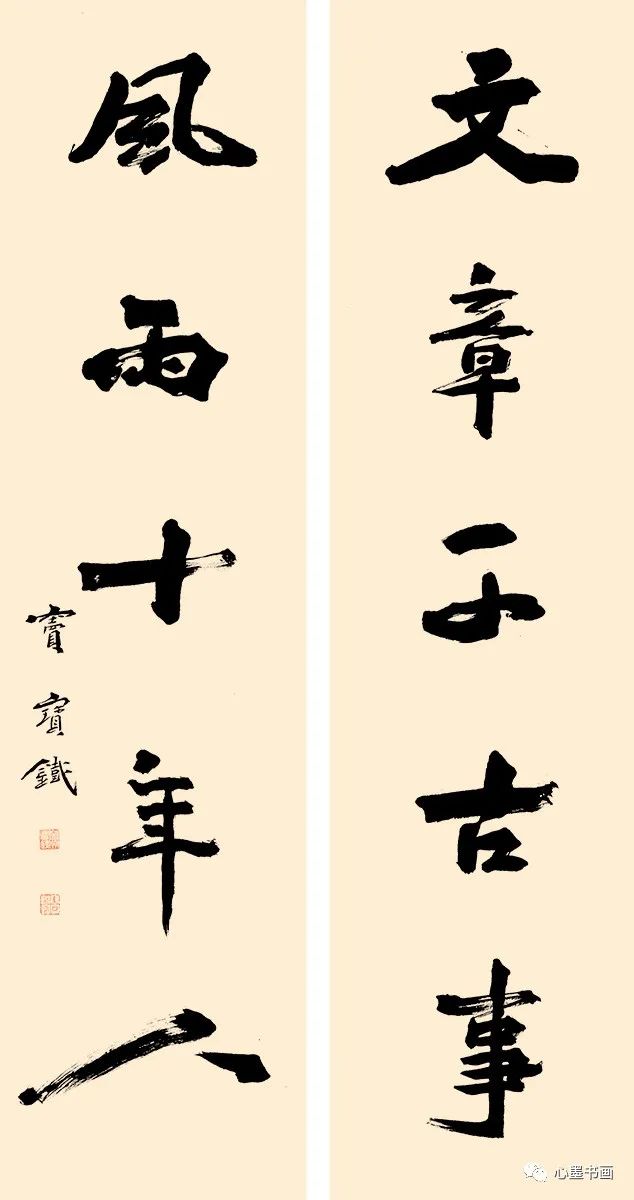 文章千古事
風雨十年人
竇寶鐵
心墨书画